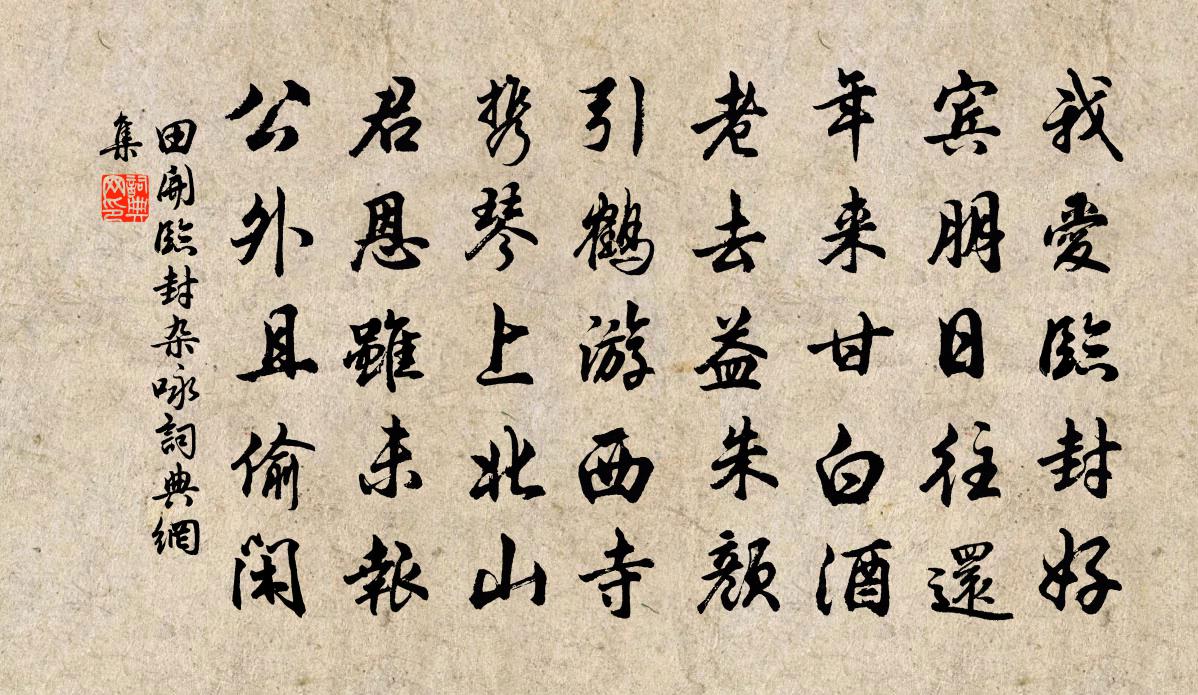 我愛臨封好
宾朋日往還
年来甘白酒
老去益朱顏
引鶴游西寺
携琴上北山
君恩雖未報
公外且偷闲
田開臨封杂咏詞典網
集
詞典
网印